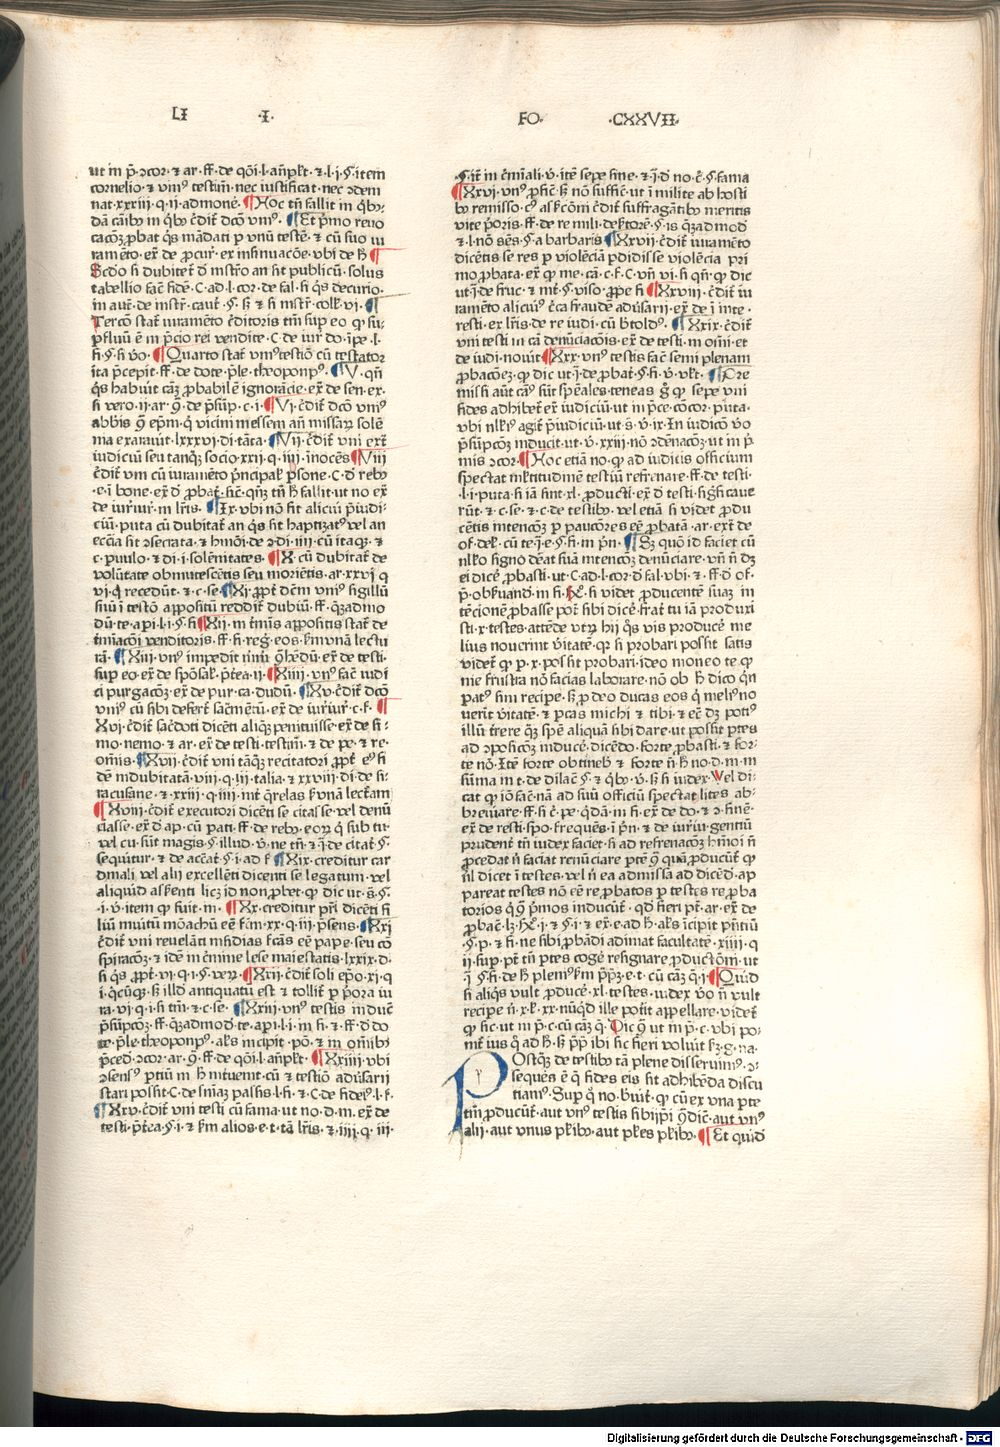 LI ·I· FO· ·CXXVII·
ut in p̄·ꝯcor·⁊ ar·ff·de q̄ōi·l·an̄pl̄t·⁊·l·i·§·item
cornelio·⁊ vniꝰ testim̄·nec iustificat·nec ꝯdem
nat·xxxiii·q·ii·admone· ¶Hoc tn̄ fallit in q̄bꝫ·
dā cāibꝫ in q̄bꝫ c̄dit̄ dc̄o vniꝰ· ¶Et p̄mo revo
cacōꝫ ꝓbat q̄s mādati ꝑ vnū testē·⁊ cū suo iu
ramēto·ex̄ de ꝓcur̄·ex insinuacōe·vbi de h̄ ¶
Scd̄o si dubitet̄ d̄ instr̄o an sit publicū·solus
tabellio fac̄ fidē·C·ad·l·cor·de fal·si q̄s decurio·
in aut̄·de instr̄·caut̄·§·sꝫ ⁊ si instr̄·coll̄·vi· ¶
Tercō stat̄ iuramēto c̄ditoris tm̄ sup eo q̄ su·
ꝑfluū ē in p̄cio rei vendite·C·de iur̄ do·īpe·l·
si·§·si v̄o· ¶Quarto stat̄ vniꝰtestiō cū testator
ita p̄cepit·ff·de dote·p̄le·theoponpꝰ· ¶V·qn̄
q̄s habuit cāꝫ ꝓbabilē ignorācie·ex̄ de sen·ex·
si vero·ii·ar·ꝯ̄·de p̄sūp·c·i· ¶Vi c̄dit̄ dc̄o vniꝰ
abbīs ꝯ̄ ep̄m·q̄ vicini messem an̄ missaꝝ solē
ma exarauit·lxxxvi·di·tāta· ¶Vii·c̄dit̄ vni ext̄
iudiciū seu tanqꝫ socio·xxii·q·iiii·inocēs ¶Viii
c̄dit̄ vni cū iuramēto p̄ncipal̄ ꝑsone·C·d̄ rebꝫ
·e·i bone·ex̄ d̄ ꝓbat̄·sic̄·qn̄ꝫ tn̄ h̄ fallit·ut no ex̄
de iur̄iur̄·in lr̄is· ¶Ix·vbi nō fit alicui p̄iudi·
ciū·puta cū dubitat̄ an q̄s sit baptizatꝰ vel an
ecc̄ia sit ꝯsecrata·⁊ hm̄ōi·de ꝯ·di·iiii·cū itaqꝫ·⁊
c·ꝑuulo·⁊ di·i·solēnitates· ¶X·cū dubitat̄ de
volūtate obmutescētis seu moriētis·ar·xxvi q
vi·q̄ recedūt·⁊·c·se· ¶Xi·ꝓpt̄ dc̄m vniꝰ sigillū
suū i testō appositū reddit̄ dubiū·ff·q̄ꝫadmo
dū·te·api·l·i·§·si ¶Xii·in t̄minis appositis stat̄ de
t̄miacōi venditoris·ff·fi·reg̃·eos·km̄vnā lectu
rā· ¶Xiii·vnꝰ impedit mr̄iū ꝯ̄hēdū·ex̄ de testi·
sup eo·ex̄ de spōsal̄·p̄tea·ii· ¶Xiiii·vnꝰ fac̄ iudi
ci purgacōꝫ·ex̄ de pur·ca·dudū· ¶Xv·c̄dit̄ dc̄o
vniꝰ cū sibi defert̄ sac̄mētū·ex̄ de iur̄iur̄·c·f· ¶
Xvi·c̄dit̄ sac̄doti dicēti aliqꝫ penituisse·ex̄ de si·
mo·nemo·⁊ ar·ex̄ de testi·testim̄·⁊ de pe·⁊ re·
om̄is· ¶Xvii·c̄dit̄ vni tāqꝫ recitatori ꝓpt̄ eꝰ fi
dē indubitatā·viii·q·iii·talia·⁊ xxviii·di·de si·
racusane·⁊·xxiii·q·iiii·int̄ q̄relas kvnā lectam
¶Xviii·c̄dit̄ executori dicēti se citasse·vel denū
ciasse·ex̄ d̄ ap·cū pati·ff·de rebꝫ·eoꝝ q̄ sub tu·
vel cu·sūt magis·§·illud·v̄·ne tn̄·⁊ i·de citat̄·§·
sequitur·⁊ de accāt·§·i·ad k̄ ¶Xix·creditur car
dinali vel alii excellēti dicenti se legatum·vel
aliquid askenti licꝫ id non ꝓbet·qꝫ dic ut·s̄·§·
·i·v̄·item qꝫ fuit·in· ¶Xx·creditur pr̄i dicēti fi
liū inuitū mōachū eē km̄·xx·q·iii·p̄sens· ¶Xxj
c̄dit̄ vni reuelāti insidias kc̄as eē pape·seu co
spiracōꝫ·⁊ idē in c̄mine lese maiestatis·lxxix·d·
si q̄s ꝓpt̄·vi·q·i·§·veꝝ· ¶Xxii·c̄dit̄ soli ep̄o·xi·q
i·q̄cūqꝫ·sꝫ illd̄ antiquatū est ⁊ tollit̄ p p̄ora iu
ra·vi·q·i·si tm̄·⁊·c·se· ¶Xxiii·vnꝰ testis induc̄
p̄sūpcōꝫ·ff·q̄ꝫadmod̄·te·api·l·i·in fi·⁊ ff·d̄ do
te·p̄le·theoponpꝰ·als incipit·pō·⁊ in om̄ibꝫ
p̄ced̄·ꝯcor·ar·ꝯ̄·ff·de q̄ōi·l·an̄pl̄t· ¶Xxiiii·vbi
ꝯsensꝰ ꝑtiū in h̄ int̄uenit·cū ⁊ testiō adūsarii
stari possit·C·de sn̄iāꝫ passis·l·fi·⁊ C·de fideꝰ·l·k̄·
¶Xxv·c̄dit̄ vni testi cū fama·ut no·d·m·ex̄ de
testi·p̄tea·§·i·⁊ km̄ alios·e·t·tā lr̄is·⁊·iiii·q·iii·
§·it̄ in c̄minali·v̄·itē sepe·fine·⁊ i·d̄ no·ē·§·fama
¶Xxvi·vnꝰ ꝓfic̄·sꝫ nō suffic̄·ut i milite ab hosti
bꝫ remisso·cꝰ askcōni c̄dit̄ suffragātibꝫ meritis
vite p̄oris·ff·de re mili·deꝭtorē·§·is q̄ꝫadmod̄
⁊·l·nō sēs·§·a barbaris ¶Xxvii·c̄dit̄ iuramēto
dicētis se res p violēciā ꝑdidisse violēcia pri
mo ꝓbata·ex̄ qꝫ me·cā·c·f·C·vn̄ vi·si qn̄·qꝫ dic
ut·j·de fruc·⁊ int̄·§·viso·ꝓpe fi ¶Xxviii·c̄dit̄ iu
ramēto aliciuꝰ c̄ca fraudē adūsarii·ex̄ de i inte·
resti·ex lr̄is·de re iudi·cū b̄toldꝰ· ¶Xxix·c̄dit̄
vni testi in cā denūciacōis·ex̄ de testi·in om̄i·et
de iudi·nouit ¶Xxx·vnꝰ testis fac̄ semi plenam
ꝓbacōeꝫ·qꝫ dic ut·j·de ꝓbat̄·§·fi·v̄·vl̄t· ¶Pre
missi aūt cāꝰ sūt spēales·teneas g̊ qꝫ sepe vni
fides adhibet̄·ex̄ iudiciū·ut in p̄ce·cōcor·puta·
vbi nll̄iꝰ agit̄ p̄iudiciū·ut·s̄·v̄·ix·In iudicō v̄o
p̄sūpcōꝫ inducit·ut·v̄·xxiii·nō ꝯdēnacōꝫ·ut in p̄
mis ꝯcor· ¶Hoc etiā no·qꝫ ad iudicis officium
spectat mltitudinē testiū refrenare·ff·de testi·
·l·i·puta·si iā sint·xl·ꝓducti·ex̄ d̄ testi·sigh caue
rūt·⁊·c·se·⁊·c·de testibꝫ·vel etiā si videt̄ ꝓdu
cētis intencōꝫ ꝑ paucōres eē ꝓbatā·ar·ext̄ de
of·del·cū te·i·e·§·fi·in p̄n· ¶Sꝫ quō id faciet cū
nll̄o signo deat suā intencōꝫ denūciare·vn̄ n̄ dꝫ
ei dic̄e·ꝓbasti·ut·C·ad·l·cor·d̄ fal·vbi·⁊·ff·d̄ of·
p̄·obkuand·in fi·R̄·si videt̄ ꝓducentē suaꝫ in
tēcionē ꝓbasse·pot̄ sibi dic̄e·frat̄ tu iā produxi
sti·x·testes·attēde vtꝝ hij q̄s vis producē me
lius nouerint v̄itatē·qꝛ si probari possit satis
videt̄ qꝫ p·x·possit probari·ideo moneo te qꝫ
me frustra nō facias laborare·nō ob h̄ dico q̄n
patꝰ sim recipe·sꝫ ꝓ deo ducas eos q̄ meliꝰ no
uerit v̄itatē·⁊ ꝑcas michi ⁊ tibi·⁊ eē dꝫ potiꝰ
illū t̄rere qꝫ spē aliquā sibi dare·ut possit ꝑtes
ad ꝯposicōꝫ inducē·dicēdo·forte ꝓbasti·⁊ for·
te nō·Itē forte obtineb̄ ⁊ forte n̄·h̄ no·d·m·in
sūma in t·de dilac̄·§·⁊ q̄bꝫ·v̄·sꝫ si iudex·Vel di·
cat qꝫ iō fac̄·nā ad suū officiū spectat lites ab·
breuiare·ff·si c̄·pe·qdā·in fi·ex̄ de do·⁊ ꝯ·finē·
ex̄ de resti·spo·frequēs·i p̄n·⁊ de iur̄iu·gentiū
prudent̄ tn̄ iudex faciet·si ad refrenacōꝫ hm̄ōi n̄
ꝓcedat n̄ faciat renūciare ꝑtē ꝯ̄ quā ꝓducūt̄ qꝫ
nl̄ dicet i testes·vel n̄ ea admissa ad dicēd̄·ap
pareat testes nō eē reꝓbatos p testes reꝓba
torios q̄ ꝯ̄ p̄mos inducūt̄·qd̄ fieri pt̄·ar·ex̄ de
ꝓbac̄·lꝫ·R̄·i·⁊ §·i·⁊ ex·e·ad h̄·als icipit p̄ntiū
·§·p·⁊ si·ne sibi ꝓbādi adimat facultatē·xiiii·q
ii·sup·pt̄ tn̄ ꝑtes coge resignare ꝓductōm̄·ut
i·§·fi·de h̄ pleniꝰkm̄ p̄pꝫ·e·t·cū cāꝫ q·i· ¶Quid
si aliq̄s vult ꝓducē·xl·testes·iudex v̄o n̄ vult
recipe n·x·k·xx·nūqd̄ ille pot̄it appellare·videt̄
qꝫ sic·ut in p̄·c·cū cāꝫ q̄·Dic ꝯ̄ ut in p̄·c·vbi po·
int̄ ius q̄ ad h̄·sꝫ p̄p̄ ibi sic fieri voluit fꝫ·g·na·
POstqꝫ de testibꝫ tā plene disseruimꝰ·ꝯ·
sequēs ē q̄ fides eis sit adhibēda discu
tiamꝰ·Sup q̄ no·breuit̄·qꝫ cū ex vna ꝑte
tm̄ ꝓducūt̄·aut vnꝰ testis sibijp̄i ꝯ̄dic̄·aut vnꝰ
alij·aut vnus pl̄ibꝫ·aut pl̄es pl̄ibꝫ· ¶Et quid
Digitalisierung gefördert durch die Deutsche Forschungsgemeinschaft - DFG